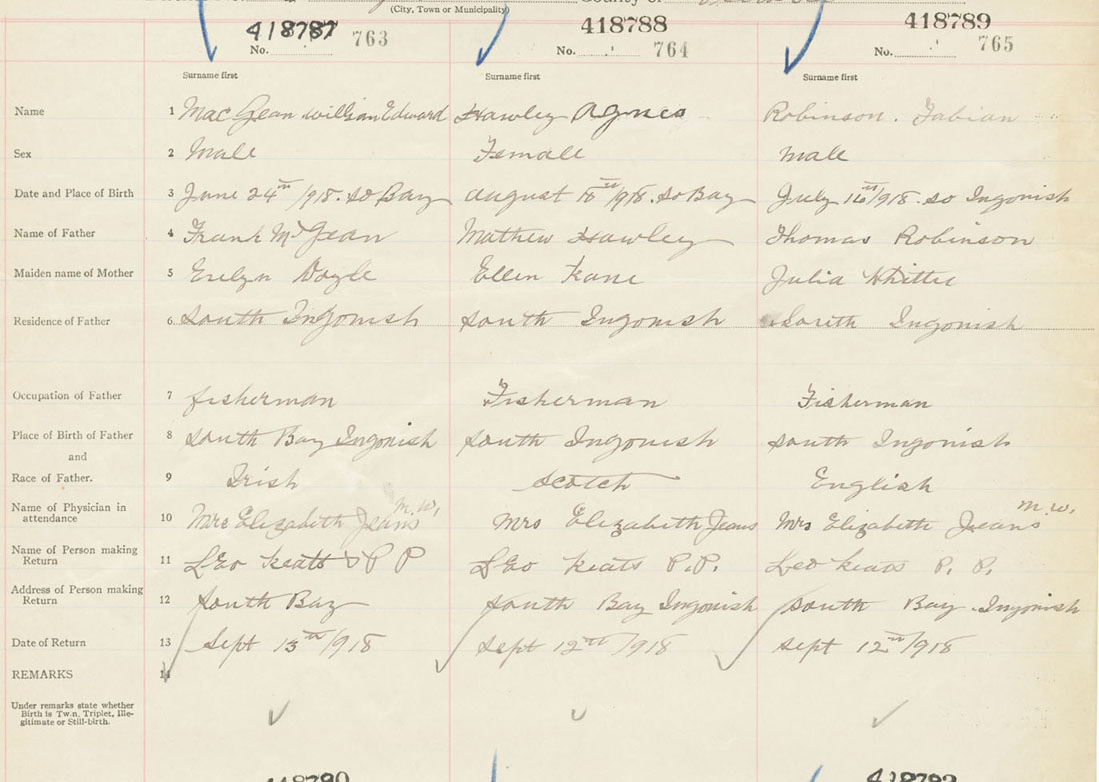 (City, Town or Municipality) County of
418787 418788 418789
No. 763 No. 764 No. 765
Surname first Surname first Surname first
Name 1 MacGean William Edward Hawley Agnes Robinson. Fabian
Sex 2 Male Female Male
Date and Place of Birth 3 June 24th/918. So Bay august th/918. So Bay July 16th/918. So Ingonish
Name of Father 4 Frank McGean Mathew Hawley Thomas Robinson
Maiden name of Mother 5 Evelyn Doyle Ellen Kane Julia Whittie
Residence of Father 6 South Ingonish South Ingonish South Ingonish
Occupation of Father 7 fisherman Fisherman Fisherman
Place of Birth of Father 8 South Bay Ingonish South Ingonish South Ingonish
and
Race of Father. 9 Irish Scotch English
Name of Physician in attendance 10 Mrs Elizabeth Jeans M.W. Mrs Elizabeth Jeans Mrs Elizabeth Jeans M.W.
Name of Person making Return 11 Leo Keats P P Leo Keats P.P. Leo Keats P. P.
Address of Person making Return 12 South Bay South Bay Ingonish South Bay. Ingonish
Date of Return 13 Sept 13th/918 Sept 12th/918 Sept 12th/918
REMARKS 14
Under remarks state whether
Birth is Twin, Triplet, Ille-
gitimate or Still-birth.
418790 418792